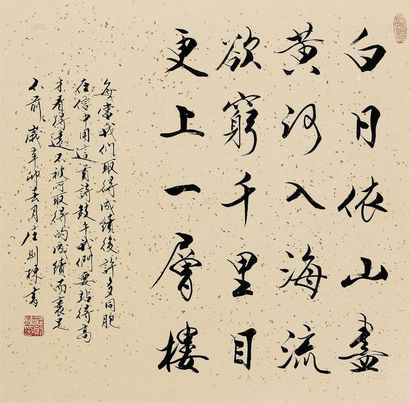 白日依山盡
黄河入海流
欲窮千里目
更上一層樓
每當我們取得成績後許多同胞
在信中用這首詩鼓午我們要站得高
才看得遠不被所取得的成績而裹足
不前 歲辛卯
月庄則棟書